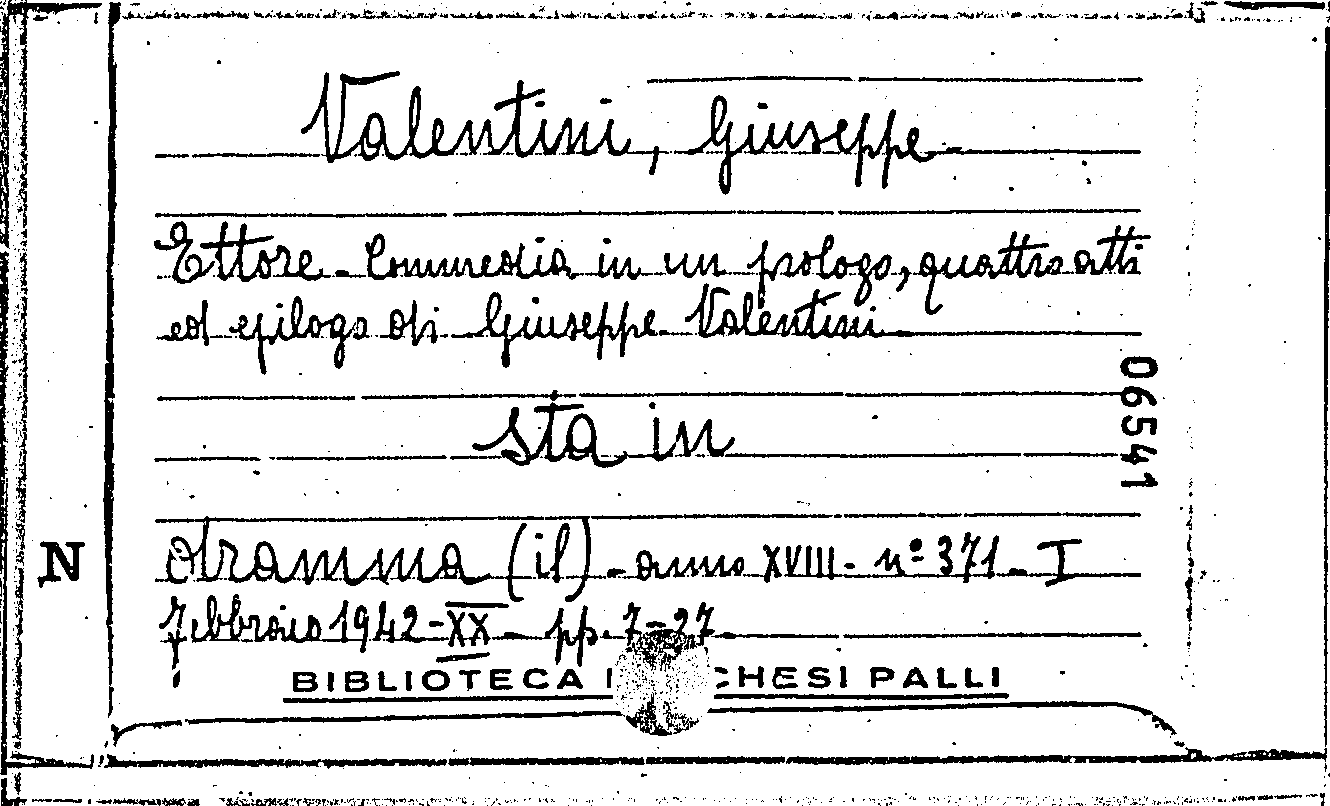 Valentini, Giuseppe.
Ettore. Commedia in un prologo, quattro atti
ed epilogo di Giuseppe Valentini.
sta in
06541
N
dramma (il) - anno XVIII - nº 371 - I
febbraio 1942 - XX - pp. 7-27.
BIBLIOTECA CHESI PALLI